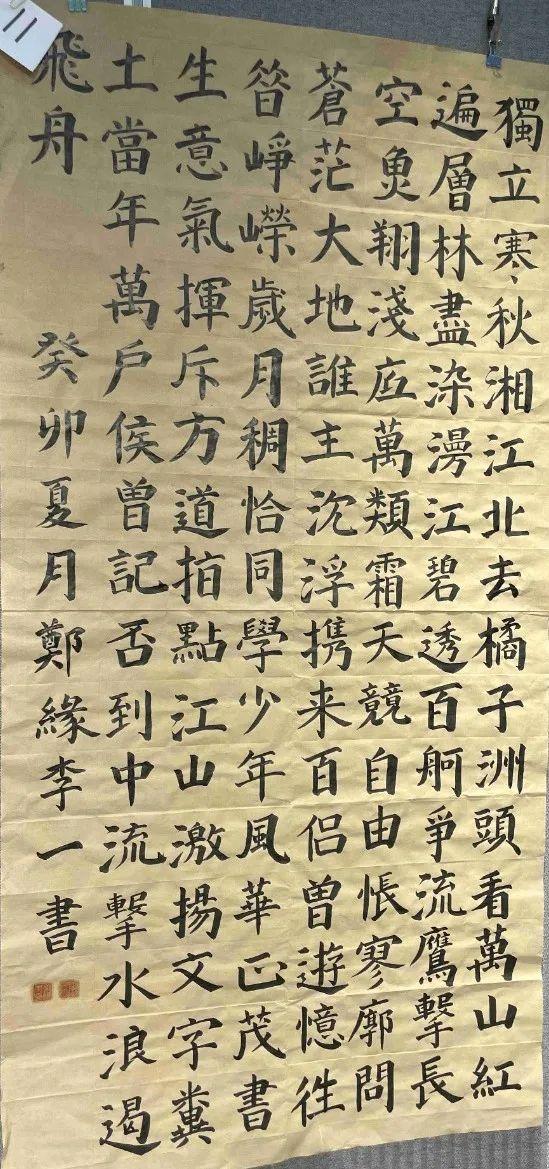 獨立寒秋湘江北去橘子洲頭看萬山紅
遍層林盡染漫江碧透百舸爭流鷹擊長
空魚翔淺底萬類霜天競自由悵寥廓問
蒼茫大地誰主沉浮携来百侣曾遊憶徃
昝崢嶸歲月稠恰同學少年風華正茂書
生意氣揮斥方道指點江山激揚文字糞
土當年萬戶侯曾記否到中流擊水浪遏
飛舟 癸卯夏月鄭緣李一書